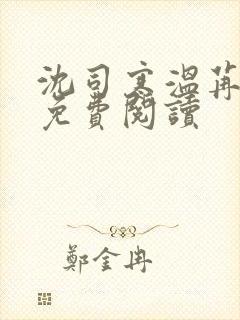 沈司寒溫苒
免費閱讀
鄭金冉